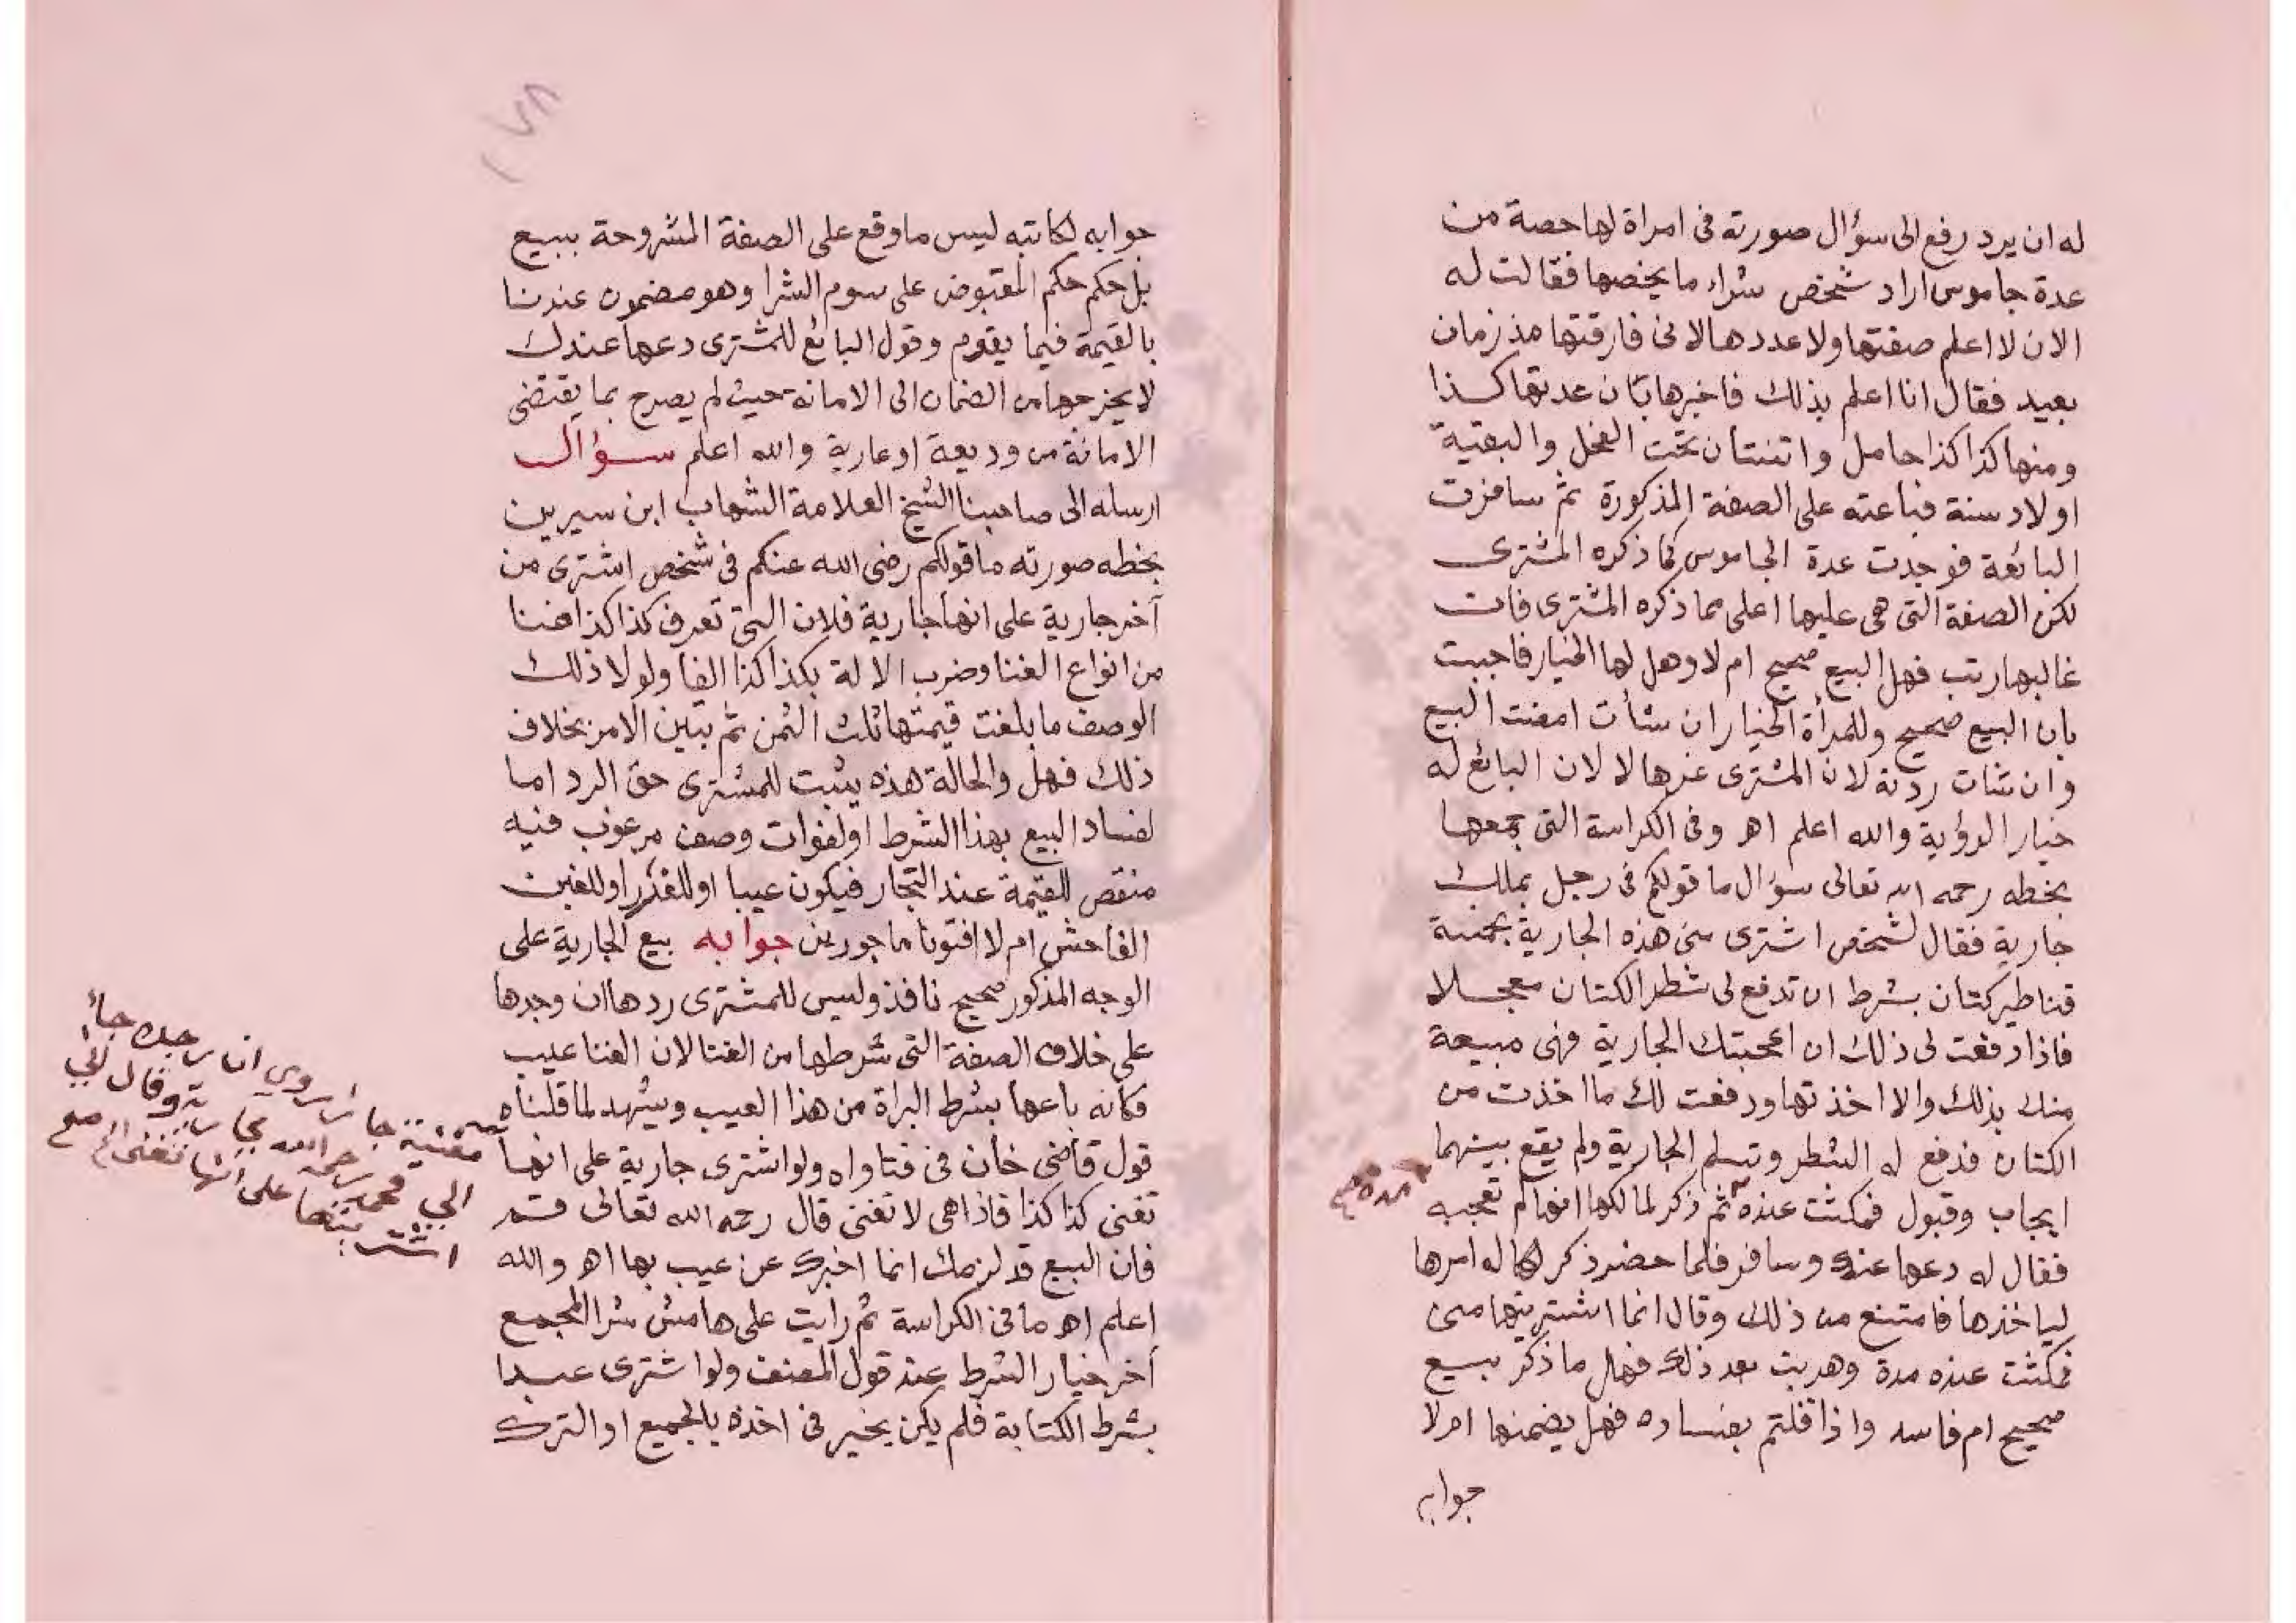 له ان يرد رفع الى سؤال صورته فى امراة لها حصة من
عدة جاموس اراد شخص شراء ما يخصها فقالت له
الان لا اعلم صفتها ولا عددها لانى فارقتها مذ زمان
بعيد فقال انا اعلم بذلك فاخبرها بان عدتها كذا
ومنها كذا كذا حامل واثنتان تحت الفحل والبقية
اولاد سنة فباعته على الصفة المذكورة ثم سافرت
البائعة فوجدت عدة الجاموس كما ذكره المشترى
لكن الصفة التى هى عليها اعلى مما ذكره المشترى فان
غالبها رتب فهل البيع صحيح ام لا وهل لها الخيار فاجبت
بان البيع صحيح وللمرأة الخيار ان شأت امضت البيع
وان شات ردته لان المشترى غرها لا لان البائع له
خيار الرؤية والله اعلم اهـ وفى الكراسة التى جمعها
بخطه رحمه الله تعالى سؤال ما قولكم فى رجل يملك
جارية فقال لشخص اشترى منى هذه الجارية بخمسة
قناطير كتان بشرط ان تدفع لى شطر الكتان معجلا
فاذا دفعت لى ذلك ان اعجبتك الجارية فهى مبيعة
منك بذلك والا اخذتها ودفعت لك ما اخذت من
الكتان فدفع له الشطر وتسلم الجارية ولم يقع بينهما
ايجاب وقبول فمكثت عنده ثم ذكر لمالكها انها لم تعجبه
مدة
فقال له دعها عندك وسافر فلما حضر ذكر لها له امرها
لياخذها فامتنع من ذلك وقال انما اشتريتها منى
فمكثت عنده مدة وهربت بعد ذلك فهل ما ذكر بيع
صحيح ام فاسد واذا قلتم بفساده فهل يضمنها ام لا
جوابه
١٧٨
جوابه لكاتبه ليس ما وقع على الصفة المشروحة ببيع
بل حكم حكم المقبوض على سوم الشرا وهو مضمون عندنا
بالقيمة فيما يقوم وقول البائع للمشترى دعها عندك
لا يخرجها من الضمان الى الامانة حيث لم يصرح بما يقتضى
الامانة من وديعة او عارية والله اعلم سؤال
ارسله الى صاحبنا الشيخ العلامة الشهاب ابن سيرين
بخطه صورته ما قولكم رضى الله عنكم فى شخص اشترى من
آخر جارية على انها جارية فلان التى تعرف كذا كذا فنا
من انواع الغنا وضرب الالة بكذا كذا الفا ولولا ذلك
الوصف ما بلغت قيمتها ثلث الثمن ثم تبين الامر بخلاف
ذلك فهل والحالة هذه يثبت للمشترى حق الرد اما
لفساد البيع بهذا الشرط او لفوات وصف مرغوب فيه
منقص للقيمة عند التجار فيكون عيبا او للغرر او للغبن
الفاحش ام لا افتونا ماجورين جوابه بيع الجارية على
الوجه المذكور صحيح نافذ وليس للمشترى ردها ان وجدها
على خلاف الصفة التى شرطها من الغنا لان الغنا عيب
فكأنه باعها بشرط البراة من هذا العيب ويشهد لما قلناه
قول قاضى خان فى فتاواه ولو اشترى جارية على انها
تغنى كذا كذا فاذا هى لا تغنى قال رحمه الله تعالى
فان البيع قد لزمك انما اخبرك عن عيب بها اهـ والله
اعلم اهـ ما فى الكراسة ثم رايت على هامش شرا المجمع
آخر خيار الشرط عند قول المصنف ولو اشترى عبدا
بشرط الكتابة فلم يكن يخير فى اخذه بالجميع او الترك
مغنية جا روى ان رجلا جاء
الى محمد رحمه الله بجارية وقال انى
اشتريتها على انها تغنى